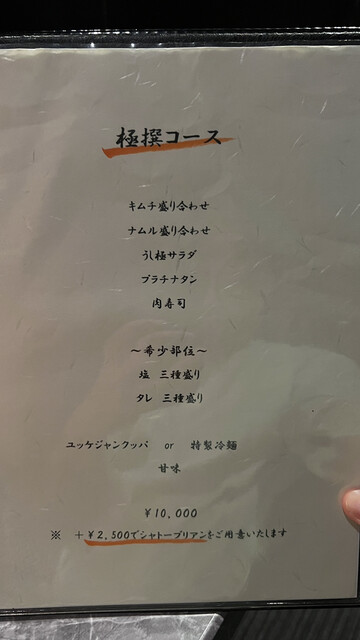 極撰コース
キムチ盛り合わせ
ナムル盛り合わせ
うし極サラダ
プラチナタン
肉寿司
～希少部位～
塩 三種盛り
タレ 三種盛り
ユッケジャンクッパ or 特製冷麺
甘味
￥10,000
※ ＋￥2,500でシャトーブリアンをご用意いたします